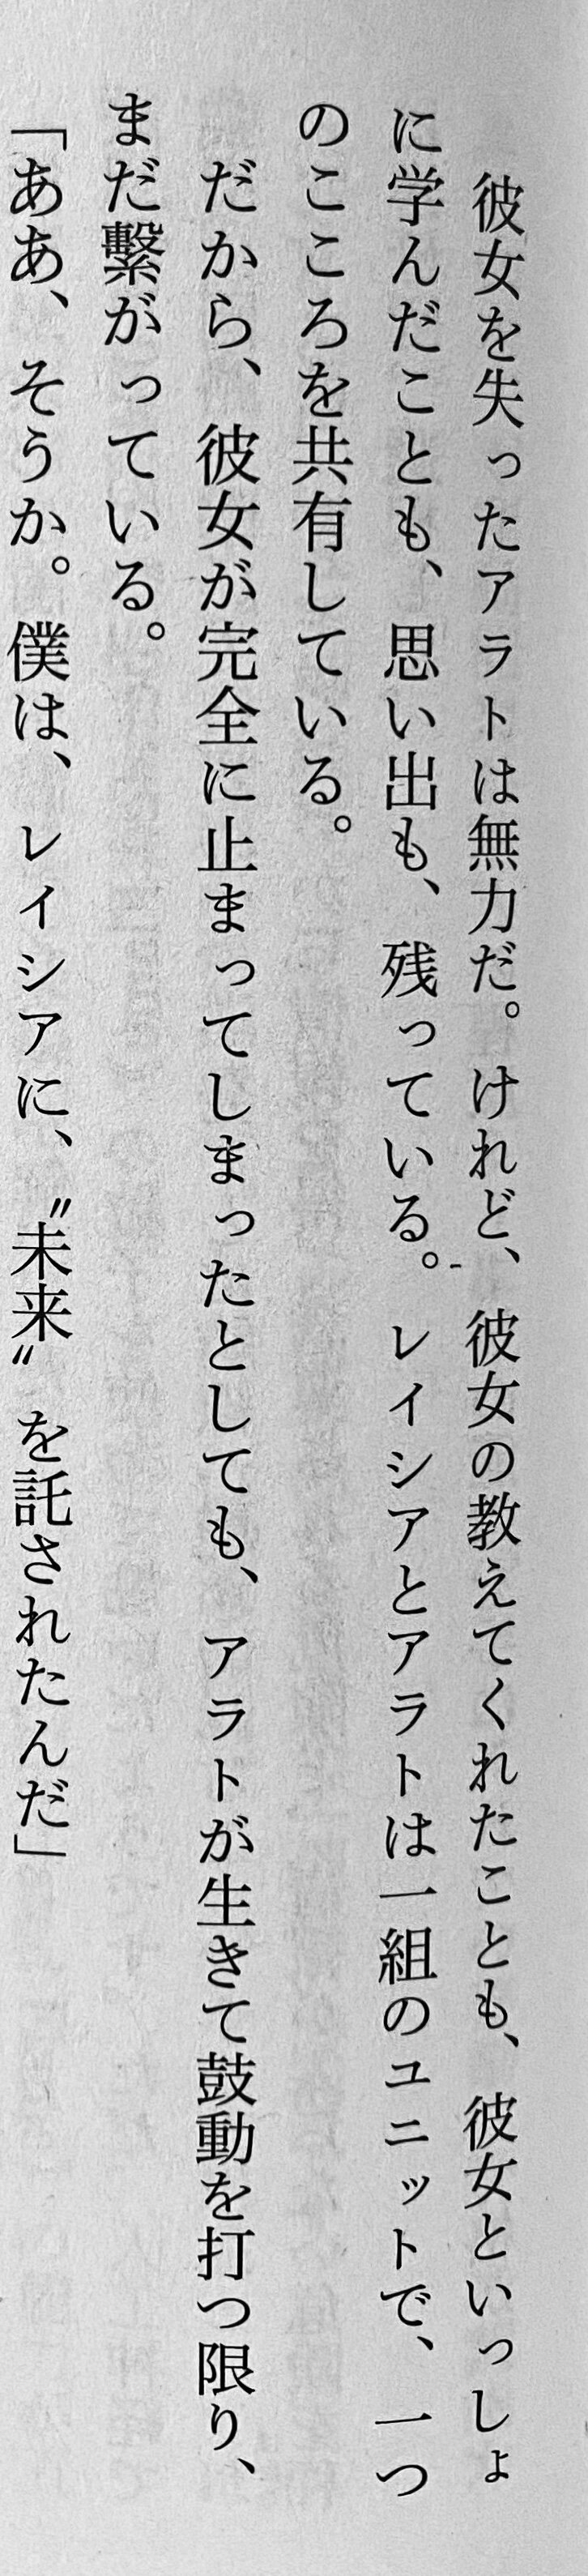 彼女を失ったアラトは無力だ。けれど、彼女の教えてくれたことも、彼女といっしょ
に学んだことも、思い出も、残っている。レイシアとアラトは一組のユニットで、一つ
のこころを共有している。
　だから、彼女が完全に止まってしまったとしても、アラトが生きて鼓動を打つ限り、
まだ繫がっている。
「ああ、そうか。僕は、レイシアに、〝未来〟を託されたんだ」